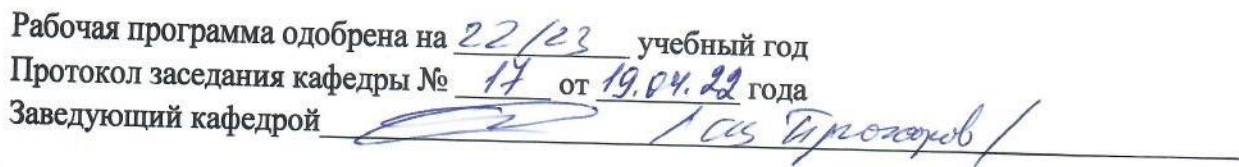 Рабочая программа одобрена на 22/23 учебный год
Протокол заседания кафедры № 17 от 19.04.22 года
Заведующий кафедрой / Прохоров /